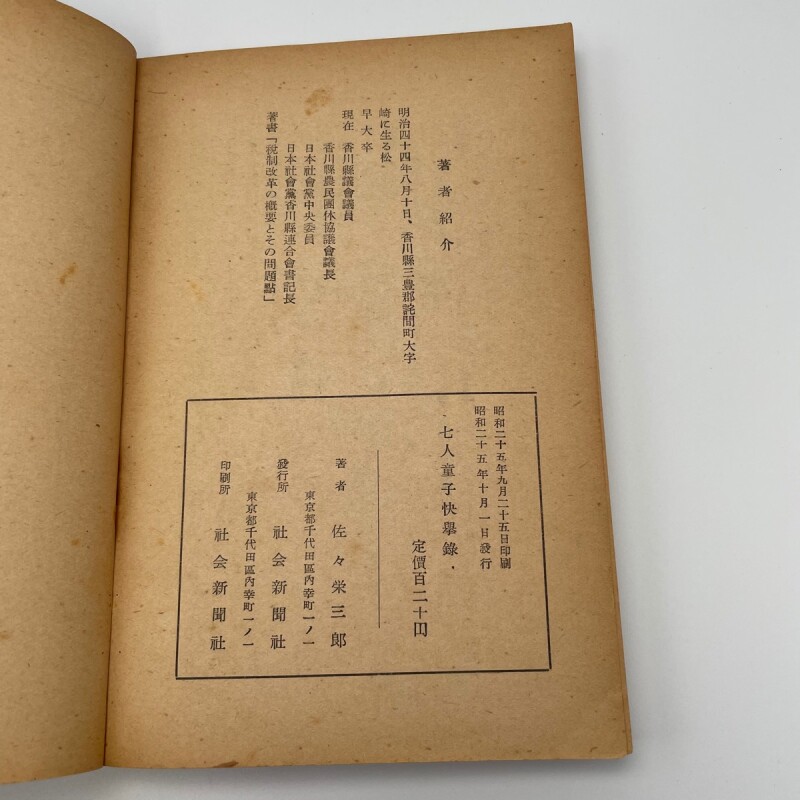 著者紹介
明治四十四年八月十日、香川縣三豊郡詫間町大字
崎に生る松
早大卒
現在　香川縣議會議員
香川縣農民團体協議會議長
日本社會黨中央委員
日本社會黨香川縣連合會書記長
著書「税制改革の概要とその問題點」
昭和二十五年九月二十五日印刷
昭和二十五年十月一日發行
七人童子快擧錄．
定價百二十円
著者　佐々栄三郎
東京都千代田區內幸町一ノ一
發行所　社会新聞社
東京都千代田區內幸町一ノ一
印刷所　社会新聞社